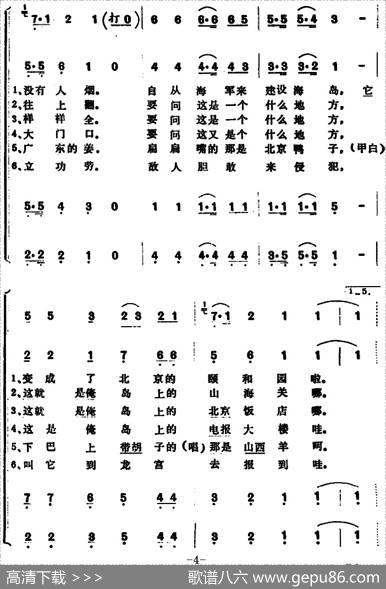 7·1 2 1 (打0) 6 6 6·6 6 5·5 5·4 3 -
5·5 6 1 0 4 4 4·4 4 3·3 3·2 1 -
1、没有人烟。 自从 海军来 建设海岛，它
2、往上翻。 要问 这是一个 什么地方，
3、样样全。 要问 这是一个 什么地方，
4、大门口。 要问 这又是个 什么地方，
5、广东的姜。 扁扁 嘴的那是 北京鸭子，(甲白)
6、立功劳。 敌人 胆敢 来侵犯，
5·5 4 3 0 1 1 1·1 1 5·5 5·4 1 -
2·2 2 1 0 4 4 4·4 4 4 3·5 5·5 1 -
1.5.
5 5 3 2 3 2 1 7·1 2 1 1 1
2 2 1 7 6 6 5 6 1 1 1
1、变成了北京的 颐和园啦。
2、这就是俺岛上的 山海关哪。
3、这就是俺岛上的 北京饭店哪。
4、这是俺岛上的 电报大楼哇。
5、下巴上带胡子的(唱)那是山西羊呵。
6、叫它到龙宫 去报到哇。
7 7 6 5 4 4 3 2 1 1 1
2 2 3 5 4 4 3 2 1 1 1
-4-
高清下载 >>>
歌谱八六 www.gepu86.com